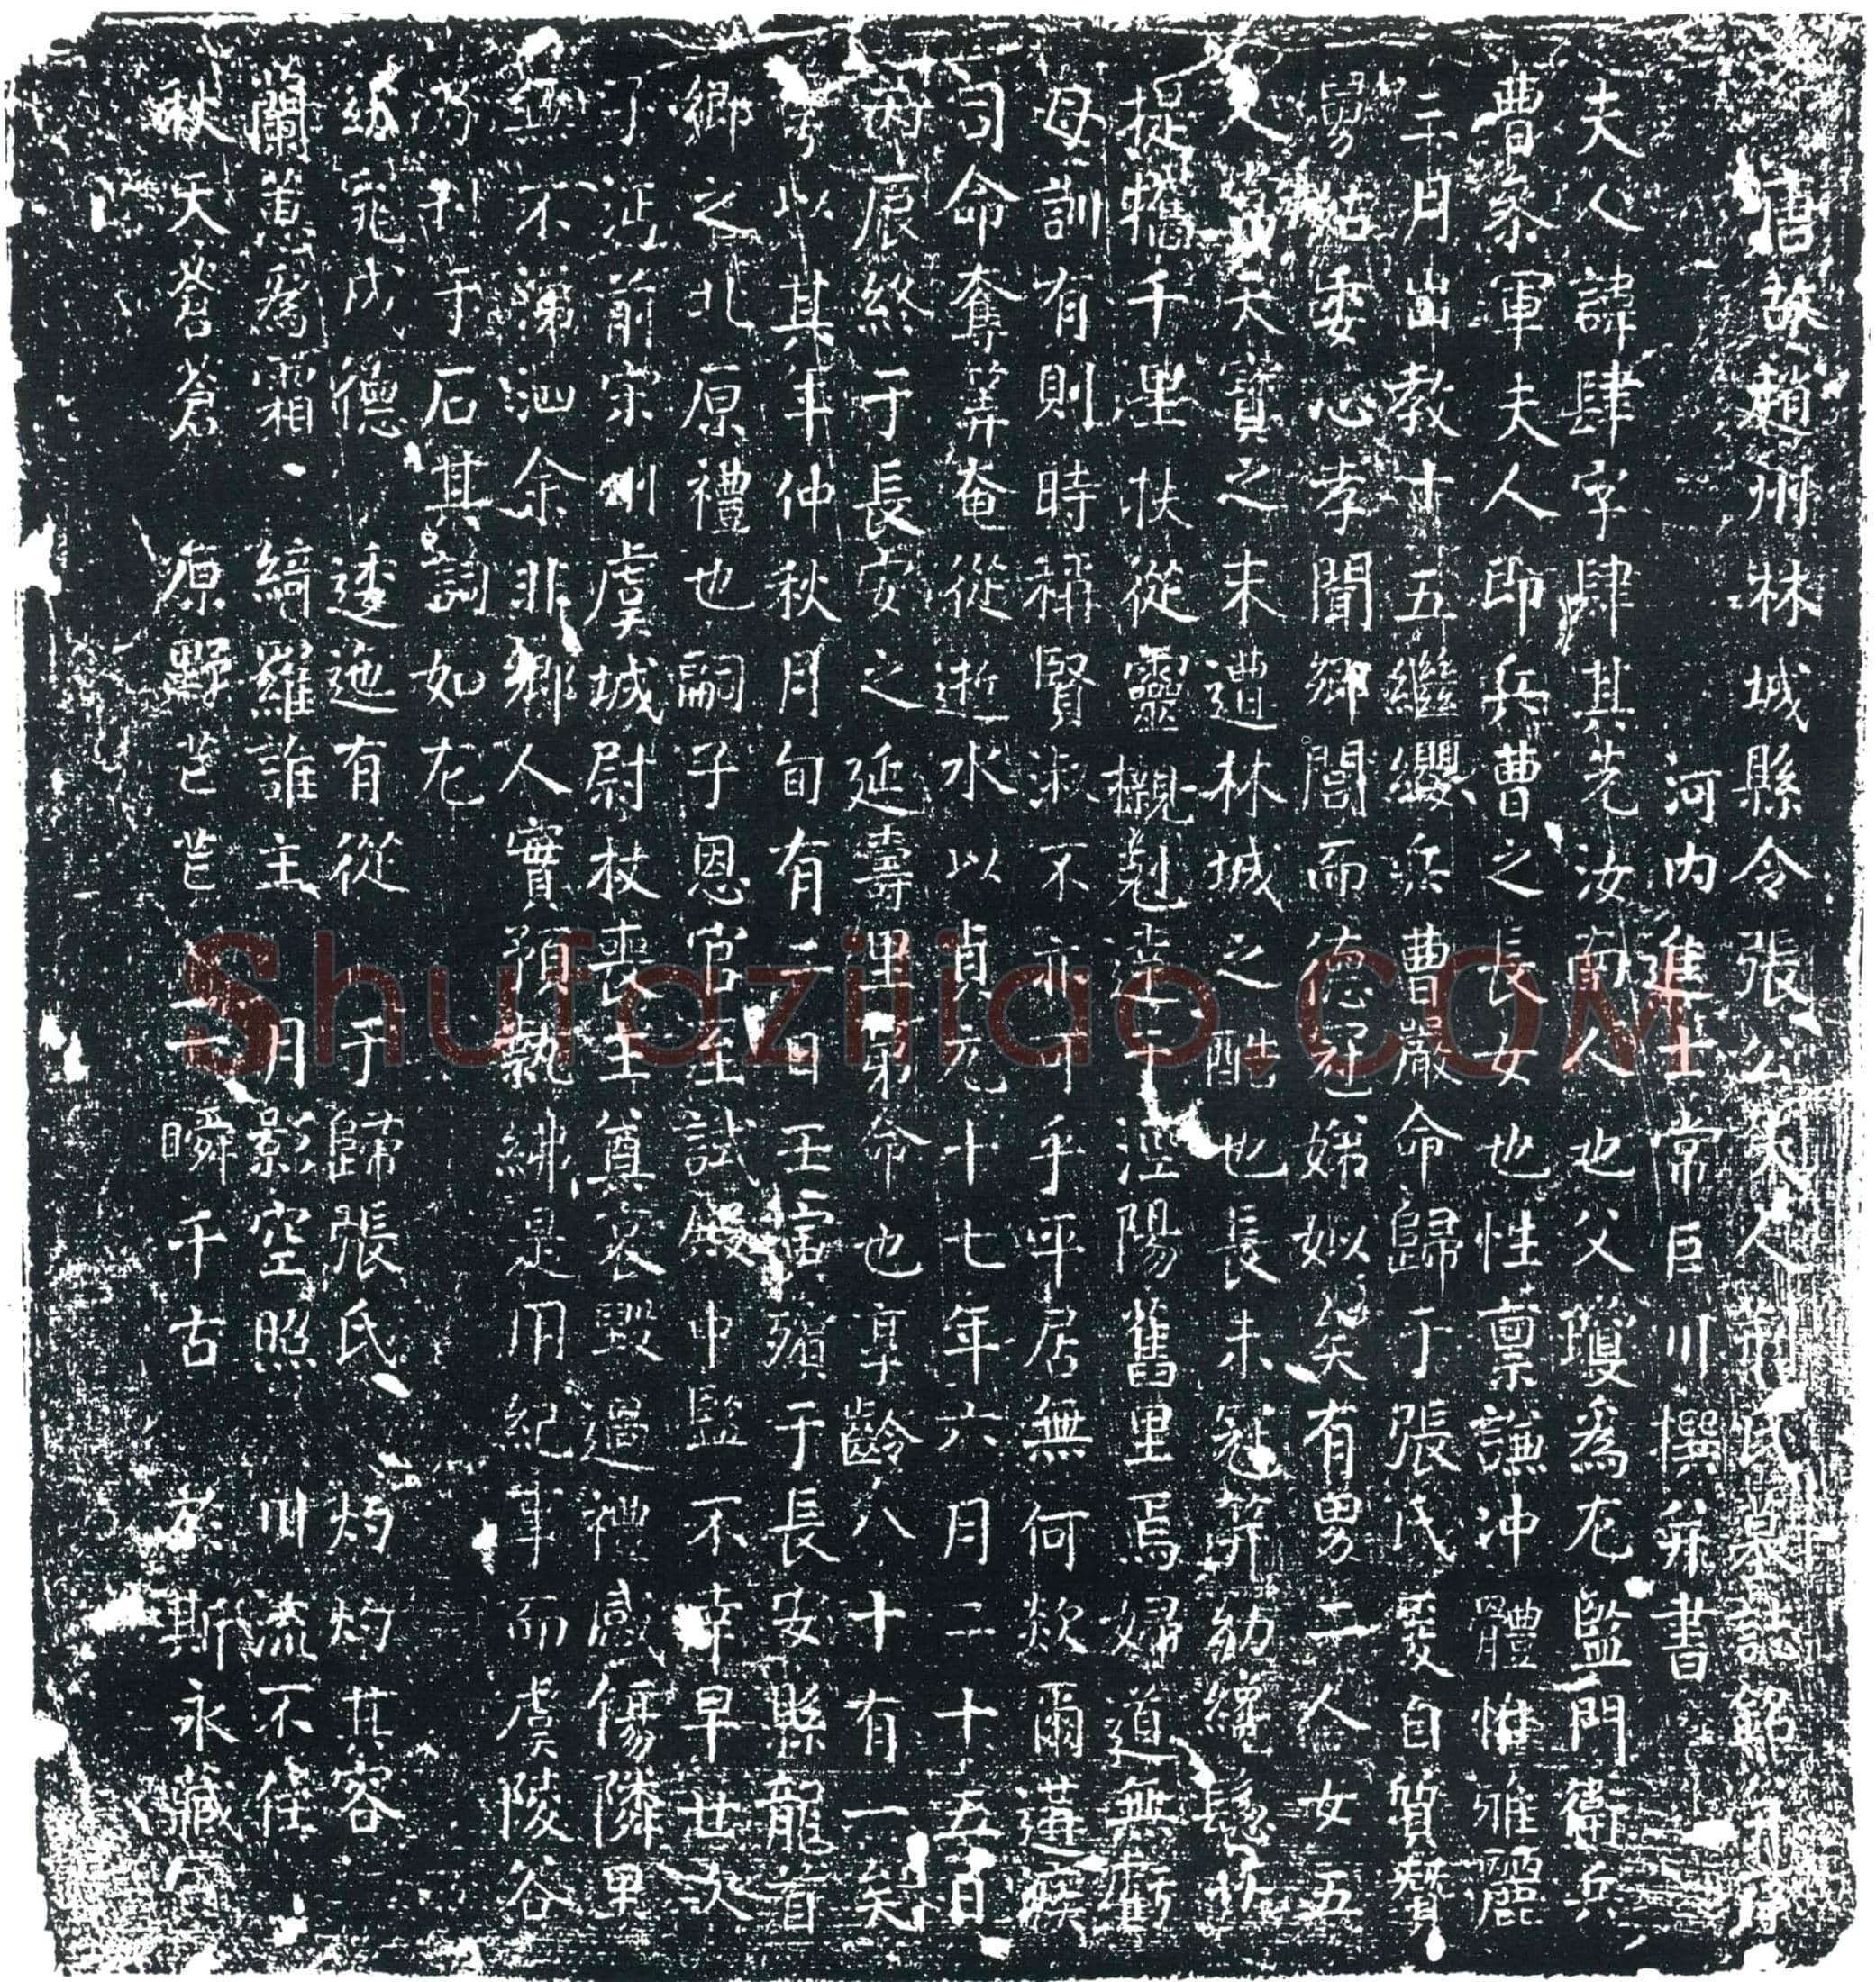 唐故趙州林城縣令張公夫人荊氏墓誌銘并序
河內進士常巨川撰并書
夫人諱肆字肆其先汝南人也父瓊為左監門衛兵
曹參軍夫人即兵曹之長女也性稟謙沖體惟雅麗
三月出教十五繼纓兵曹嚴命歸于張氏爰自質贄
舅姑委心孝聞鄉閭而德冠娣姒矣有男二人女五
人 天寶之末遭林城之酷也長未冠笄幼纔髫
提攜千里扶從靈櫬剋達于涇陽舊里焉婦道無虧
母訓有則時稱賢淑不亦可乎呼居無何欻爾遘瘼
司命奪筭奄從逝水以貞元十七年六月二十五日
丙辰終于長安之延壽里第命也享齡八十有一矣
以其年仲秋月旬有二日壬寅殯于長安縣龍首
鄉之北原禮也嗣子恩官至試殿中監不幸早世次
子沔前宋州虞城尉杖喪主奠哀毀過禮感傷隣里
無不涕泗余非鄉人實預執紼是用紀事而虞陵谷
乃刊于石其詞如左
窈窕成德 逶迤有從 于歸張氏 灼灼其容
蘭蕙為霜 綺羅誰主 月影空照 川流不住
秋天蒼蒼 原野芒芒 一瞬千古 於斯永藏
Shufaziliao.COM